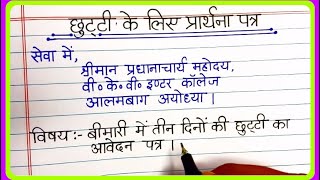 छुट्टी के लिए प्रार्थना पत्र
सेवा में,
श्रीमान प्रधानाचार्य महोदय,
वी॰ के॰ वी॰ इण्टर कॉलेज
आलमबाग अयोध्या।
विषय:- बीमारी में तीन दिनों की छुट्टी का
आवेदन पत्र।